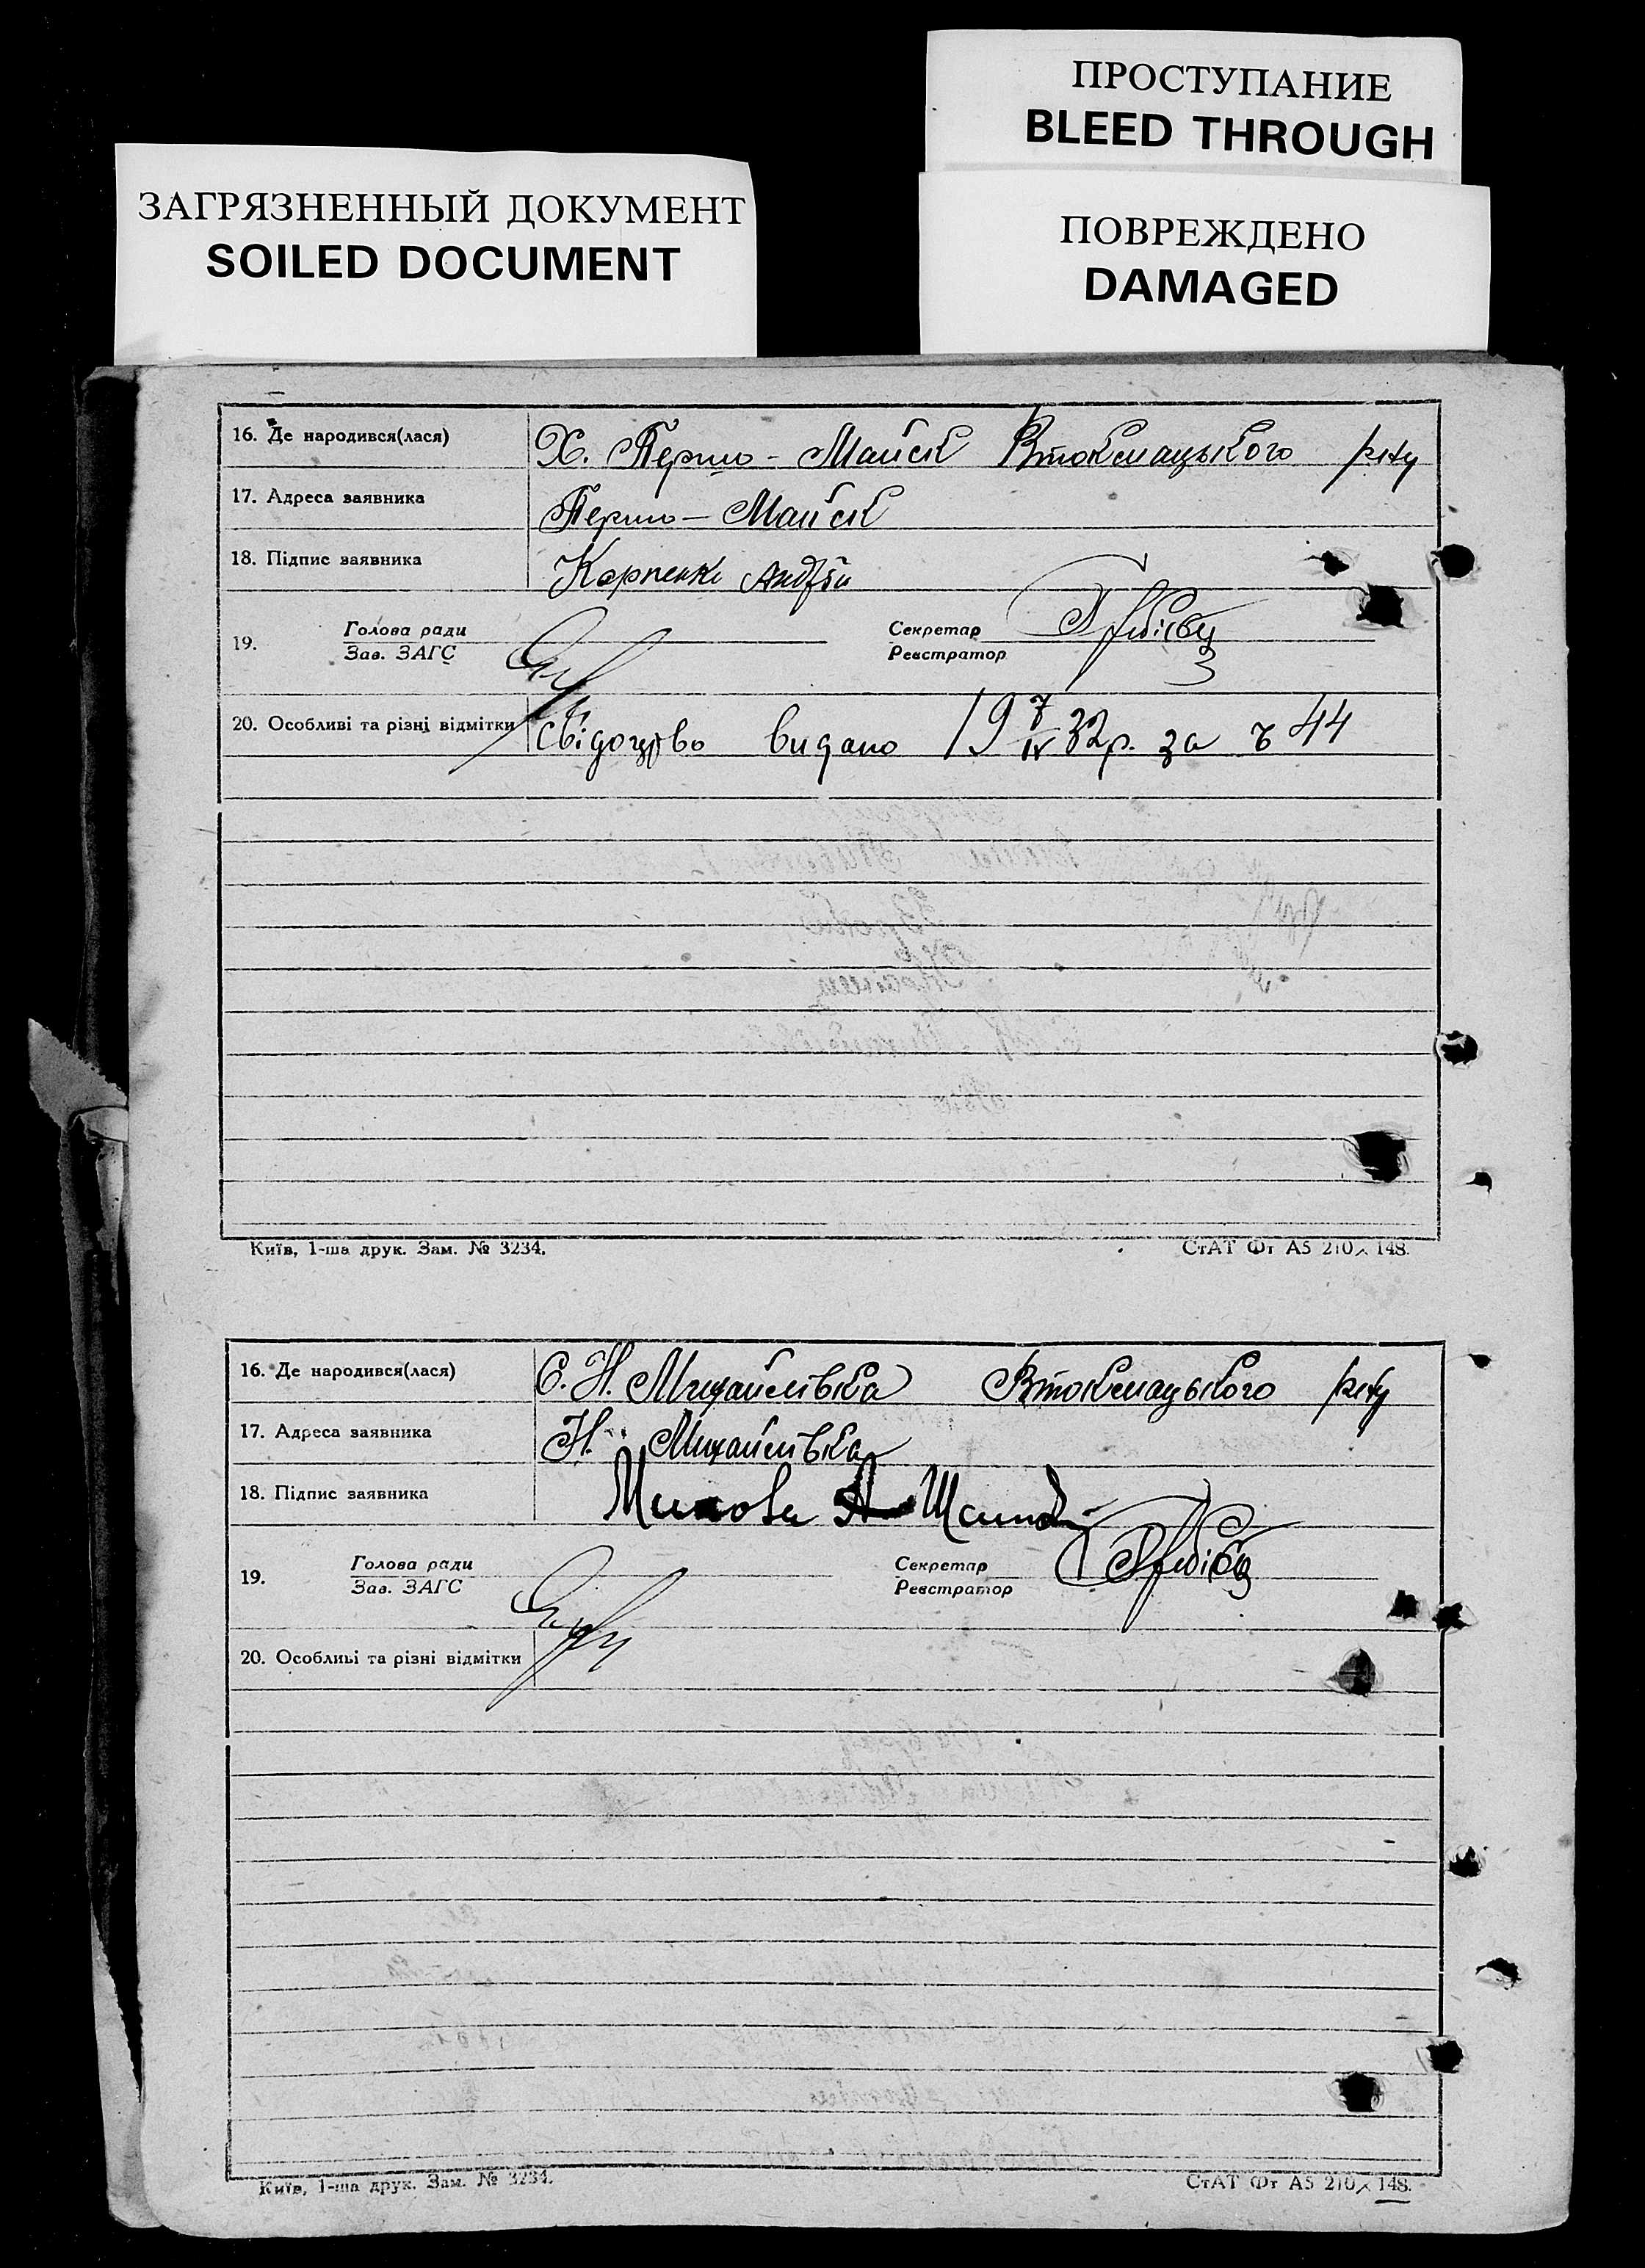 ПРОСТУПАНИЕ
BLEED THROUGH
ЗАГРЯЗНЕННЫЙ ДОКУМЕНТ
SOILED DOCUMENT
ПОВРЕЖДЕНО
DAMAGED
16. Де народився(лася) Х. Перше-Майск Втокмацького р-ну
17. Адреса заявника Перше-Майск
18. Підпис заявника Карпенко Андрій
19. Голова ради Секретар
Зав. ЗАГС Реєстратор
20. Особливі та різні відмітки Свідоцтво видано 19 7/IV 32 р. за № 44
Київ, 1-ша друк. Зам. № 3234.
СтАТ Фт А5 210×148.
16. Де народився(лася) С. Н. Михайлівка Втокмацького р-ну
17. Адреса заявника Н. Михайлівка
18. Підпис заявника
19. Голова ради Секретар
Зав. ЗАГС Реєстратор
20. Особливі та різні відмітки
Київ, 1-ша друк. Зам. № 3234.
СтАТ Фт А5 210×148.